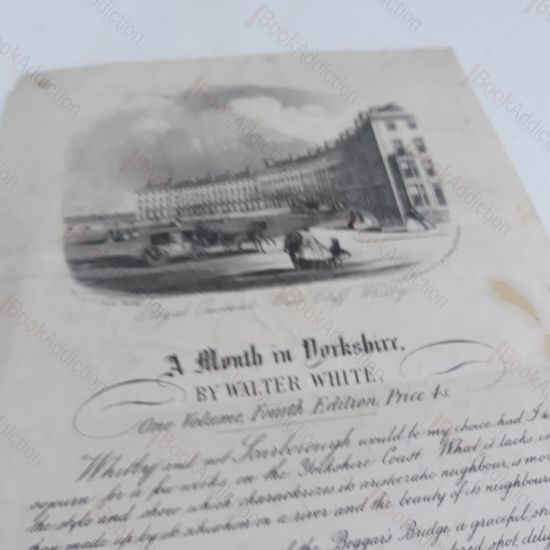 Royal Crescent West Cliff Whitby
A Month in Yorkshire,
BY WALTER WHITE,
One Volume, Fourth Edition, Price 4s.
"Whitby and not Scarborough would be my choice had I to
sojourn for a few weeks, on the Yorkshire Coast. What it lacks in
the style and show which characterizes its aristocratic neighbour, is more
than made up by its situation on a river and the beauty of its neighbour
of the Beggar's Bridge, a graceful,
spot,
BookAddiction